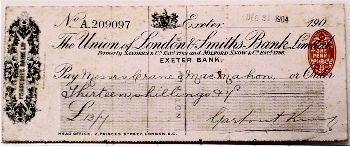 No A.209097 Exeter DEC 31 1904 190
The Union of London & Smiths Bank, Limited
Formerly SANDERS & Co. and MILFORD SNOW & Co.
EXETER BANK.
Pay Messrs Crane & MacMahon or Order
Thirteen shillings &
£ 13/
HEAD OFFICE, 2, PRINCES STREET, LONDON, E.C.